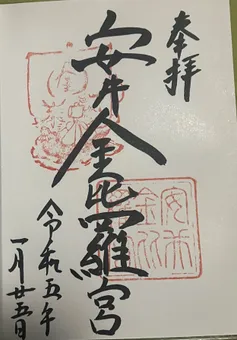 奉拝
安井金比羅宮
令和五年
一月廿五日
安井
金比